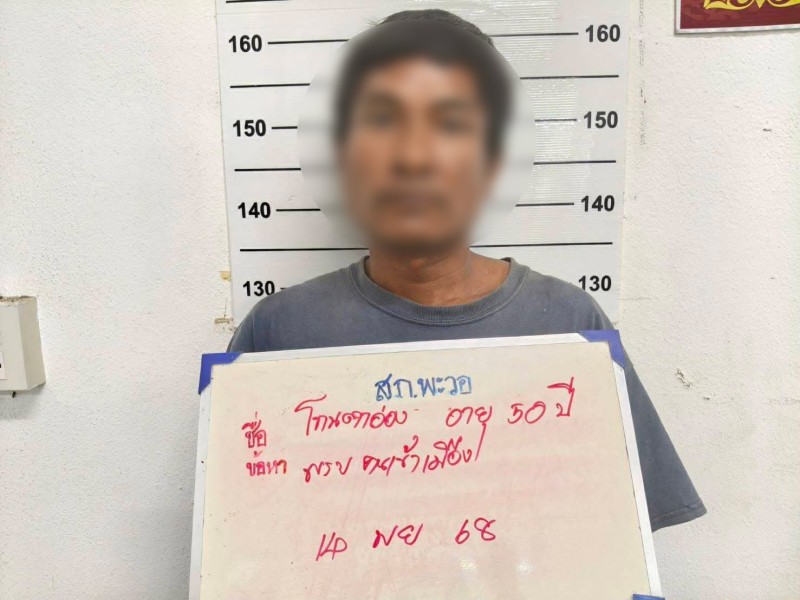 160 160
150 150
140 140
130 130
สภ.พะวอ
ชื่อ โกนตาอ่อง อายุ 50 ปี
ข้อหา พรบ คนเข้าเมือง
14 พย 68